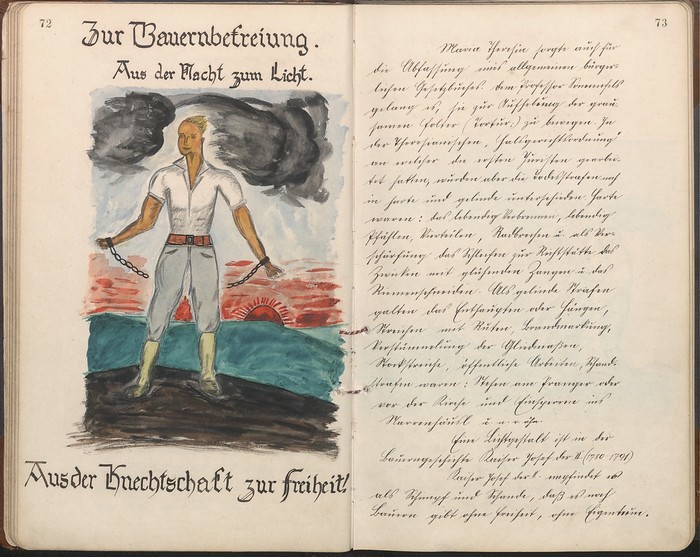 72
Zur Bauernbefreiung.
Aus der Nacht zum Licht.
Aus der Knechtschaft zur Freiheit!
73
Maria Theresia sorgte auch für
die Abfassung eines allgemeinen bürger-
lichen Gesetzbuches. Dem Professor Sonnenfels
gelang es, sie zur Aufhebung der grau-
samen Folter (Tortur) zu bewegen. In
der Theresianischen „Halsgerichtsordnung"
an welcher die ersten Juristen gearbei-
tet hatten, wurden aber die Todesstrafen noch
in harte und gelinde unterschieden. Harte
waren: das lebendig Verbrennen, lebendig
Pfählen, Vierteilen, Radbrechen u. als Ver-
schärfung das Schleifen zur Richtstätte das
Zwicken mit glühenden Zangen u. das
Riemenschneiden. Als gelinde Strafen
galten das Enthaupten oder Hängen,
Streichen mit Ruten, Brandmarkung,
Verstümmelung der Gliedmaßen,
Stockstreiche, öffentliche Arbeiten, Schand-
strafen waren: Stehen am Pranger oder
vor der Kirche und Einsperren ins
Narrenhäusl
Eine Lichtgestalt ist in der
Bauerngeschichte Kaiser Josef der II. (1780-1790)
Kaiser Josef der II. empfindet es
als Schimpf und Schande, daß es noch
Bauern gebt ohne Freiheit, ohne Eigentum.